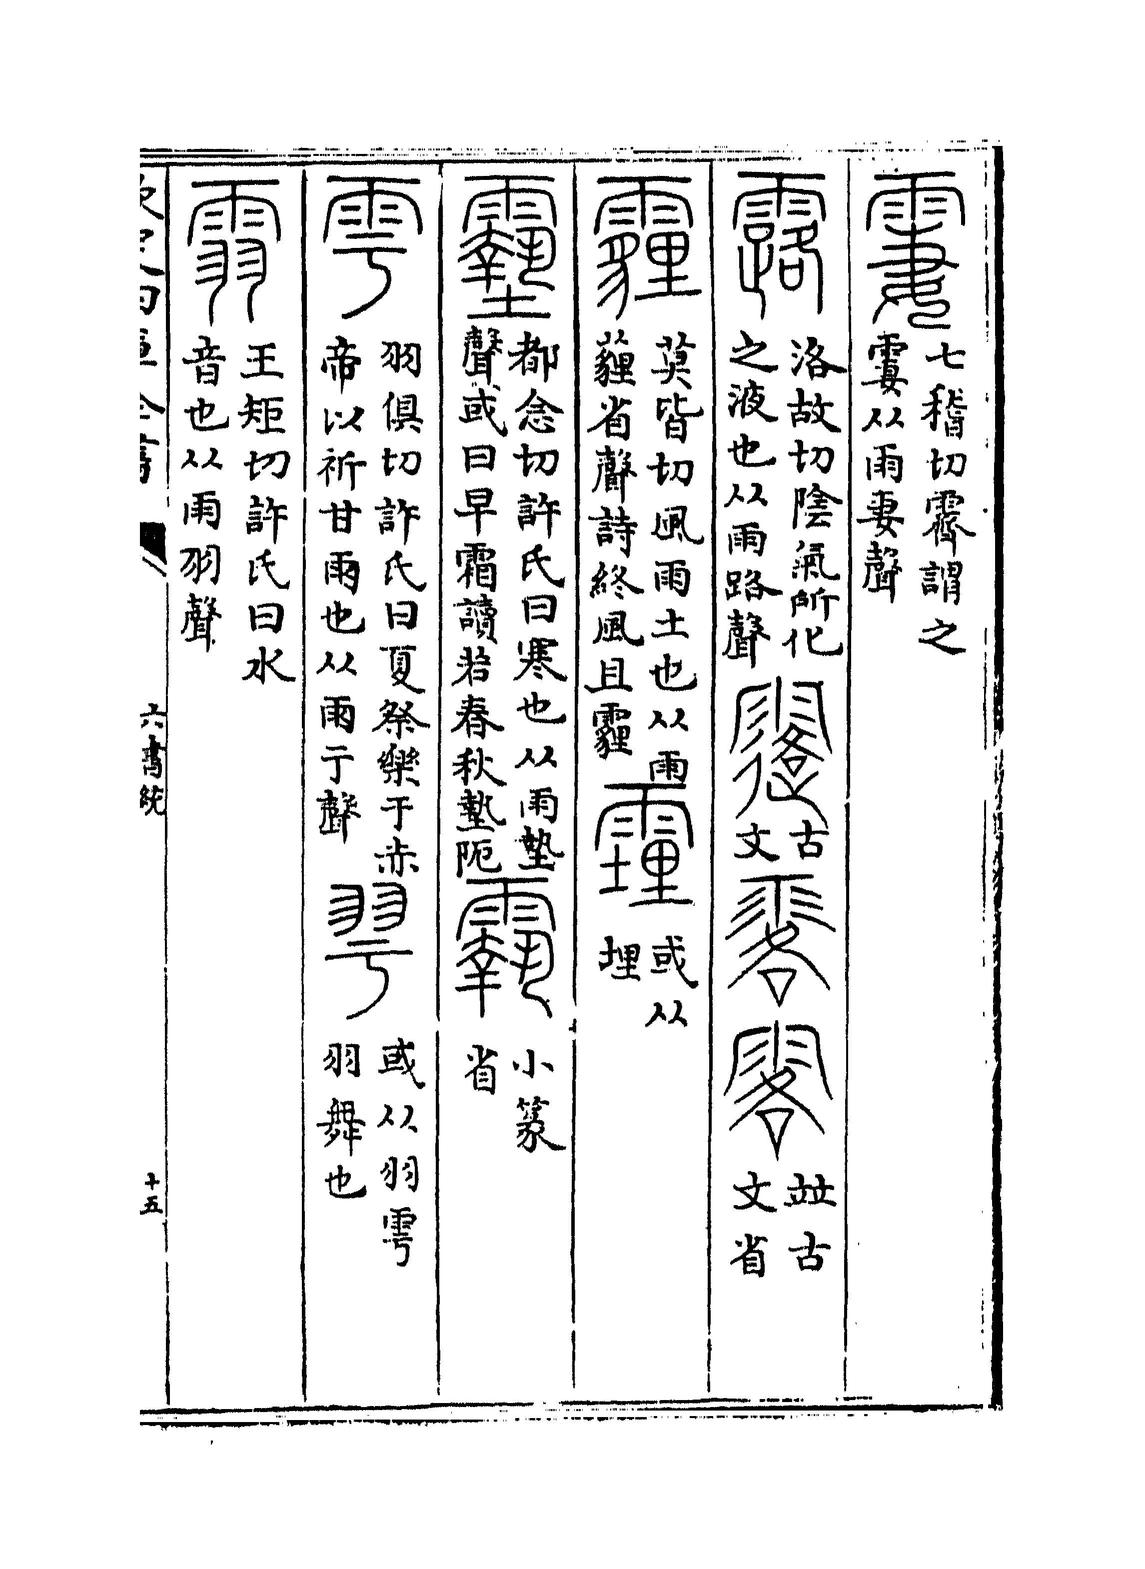 霋
七稽切霽謂之
霋从雨妻聲
露
洛故切陰氣所化
之液也从雨路聲
古
文
並古
文省
霾
莫皆切風雨土也从雨
薶省聲詩終風且霾
或从
埋
都念切許氏曰寒也从雨墊
聲或曰早霜讀若春秋墊阨
小篆
省
雩
羽俱切許氏曰夏祭樂于赤
帝以祈甘雨也从雨亏聲
或从羽雩
羽舞也
䨞
王矩切許氏曰水
音也从雨羽聲
欽定四庫全書
六書統
十五